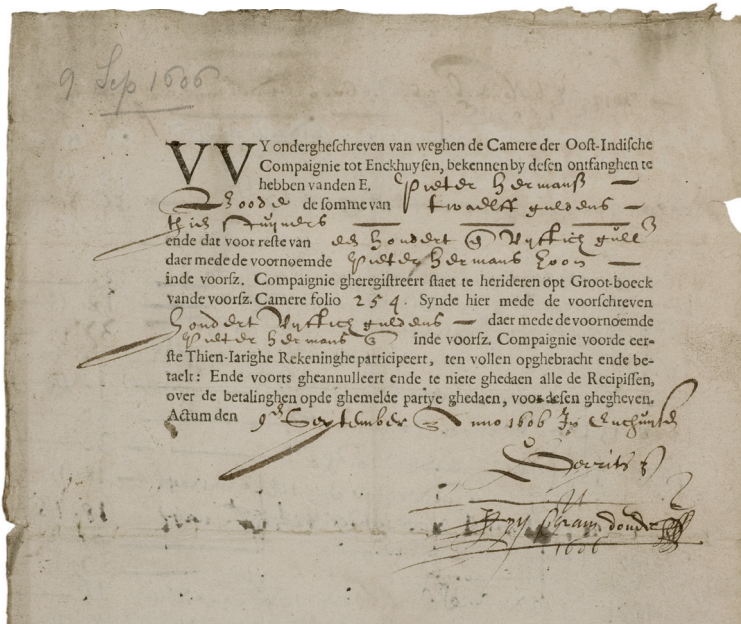 9 Sep 1606
VVY ondergheschreven van weghen de Camere der Oost-Indische
Compaignie tot Enckhuysen, bekennen by desen ontfanghen te
hebben vanden E. Pieter Hermansz
de somme van twaelff guldens
thien stuyvers
ende dat voor reste van hondert vyftich
daer mede de voornoemde Pieter Hermans zoon
inde voorsz. Compaignie gheregistreert staet te herideren opt Groot-boeck
vande voorsz. Camere folio 254. Synde hier mede de voorschreven
hondert vyftich guldens daer mede de voornoemde
Pieter Hermans inde voorsz. Compaignie voorde eer-
ste Thien-Iarighe Rekeninghe participeert, ten vollen opghebracht ende be-
taelt: Ende voorts gheannulleert ende te niete ghedaen alle de Recipissen,
over de betalinghen opde ghemelde partye ghedaen, voor desen ghegheven.
Actum den 9 September Anno 1606 In
1606